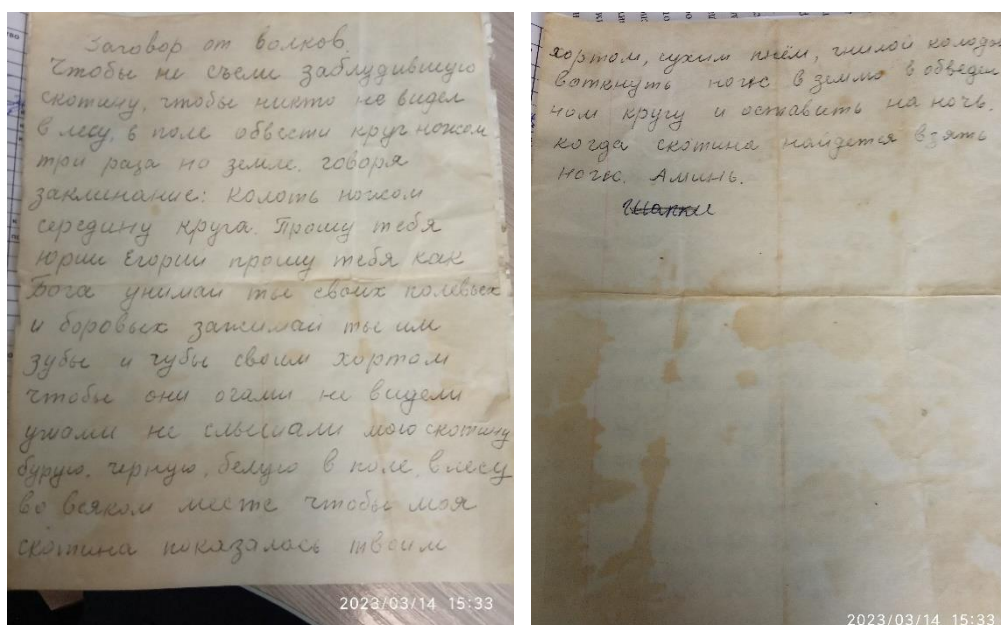 Заговор от волков.
Чтобы не съели заблудившую
скотину, чтобы никто не видел
в лесу, в поле обвести круг ножом
три раза на земле. говоря
заклинание: Колоть ножом
середину круга. Прошу тебя
Юрии Егории прошу тебя как
Бога унимаи ты своих полевых
и боровых зажимай ты им
зубы и губы своим хортам
чтобы они очами не видели
ушами не слышали мою скотину
бурую, черную, белую в поле, в лесу
во всяком месте чтобы моя
скотина показалась твоим
2023/03/14 15:33
хортам, сухим пнём, гнилой колодой
воткнуть нож в землю в обведен
ном кругу и оставить на ночь.
когда скотина найдется взять
нож. Аминь.
2023/03/14 15:33